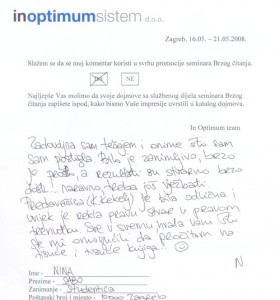 inoptimumsistem d.o.o.
Zagreb, 16.05. – 21.05.2008.
Slažem se da se moj komentar koristi u svrhu promocije seminara Brzog čitanja.
DA NE
Najljepše Vas molimo da svoje dojmove sa službenog dijela seminara Brzog
čitanja zapišete ispod, kako bismo Vaše impresije uvrstili u katalog dojmova.
In Optimum team
Zadovoljna sam tečajem i onime što sam
sam postigla. Bilo je zanimljivo, brzo
je prošlo, a rezultati su stvarno brzo
došli. Naravno, treba još vježbati.
Predavačica (K. Kekelj) je bila odlična i
uvijek je rekla pravu stvar u pravom
trenutku. Sve u svemu hvala vam što
ste mi omogućili da pročitam na
tisuće i tisuće knjiga! ☺
N.
Ime - NINA
Prezime - SABO
Zanimanje - Studentica
Poštanski broj i mjesto - 10000 Zagreb